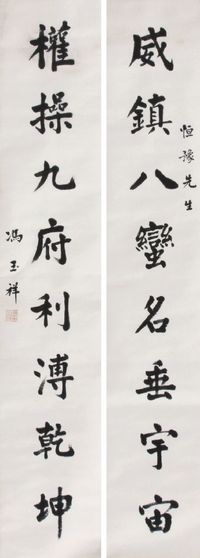 威鎮八蠻名垂宇宙
恒豫先生
權操九府利溥乾坤
馮玉祥